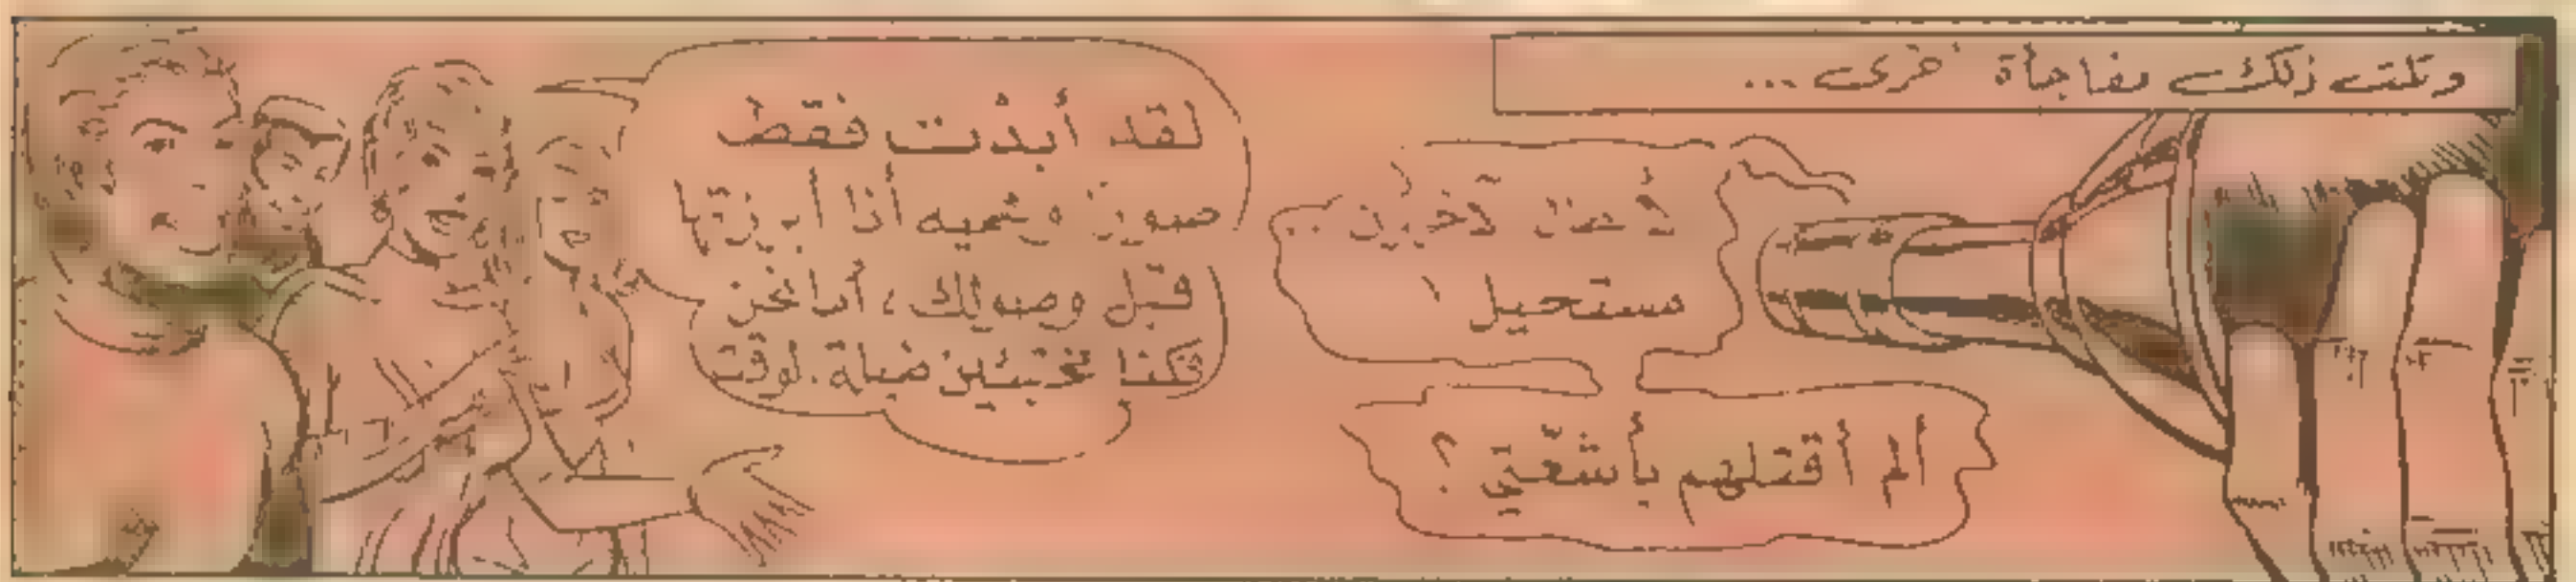 وتلت ذلك مفاجأة أخرى ...
مستحيل !
ألم أقتلهم بأشعتي ؟
لقد أبدت فقط
صورًا وهميه أنا أبرزتها
قبل وصولك ، أما نحن
فكنا مختبئين طيلة الوقت